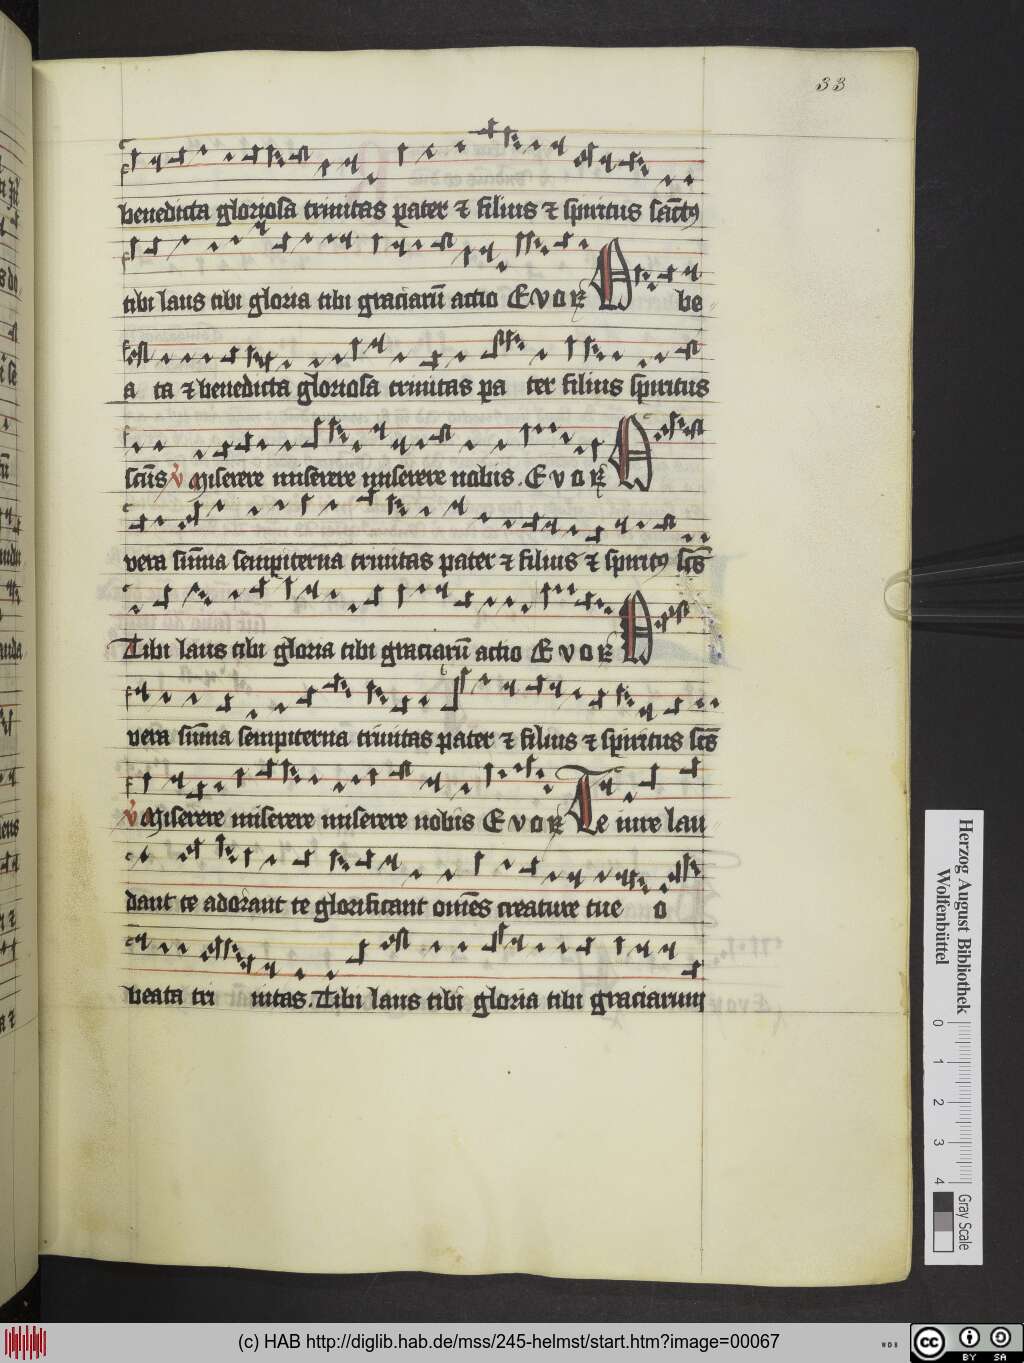 33
benedicta gloriosa trinitas pater ⁊ filius ⁊ spiritus sāctꝰ
tibi laus tibi gloria tibi graciarū actio Evoꝝ A be
a ta ⁊ benedicta gloriosa trinitas pa ter filius spiritus
scūs ℣ Miserere miserere miserere nobis. Evoꝝ A
vera sūma sempiterna trinitas pater ⁊ filius ⁊ spiritꝰ scs̄
Tibi laus tibi gloria tibi graciarū actio Evoꝝ A
vera sūma sempiterna trinitas pater ⁊ filius ⁊ spiritus scs̄
℣ Miserere miserere miserere nobis Evoꝝ Te iure lau
dant te adorant te glorificant om̄es creature tue o
beata tri nitas. Tibi laus tibi gloria tibi graciarum
Herzog August Bibliothek
Wolfenbüttel
0 1 2 3 4
Gray Scale
(c) HAB http://diglib.hab.de/mss/245-helmst/start.htm?image=00067
WDB
cc
BY SA